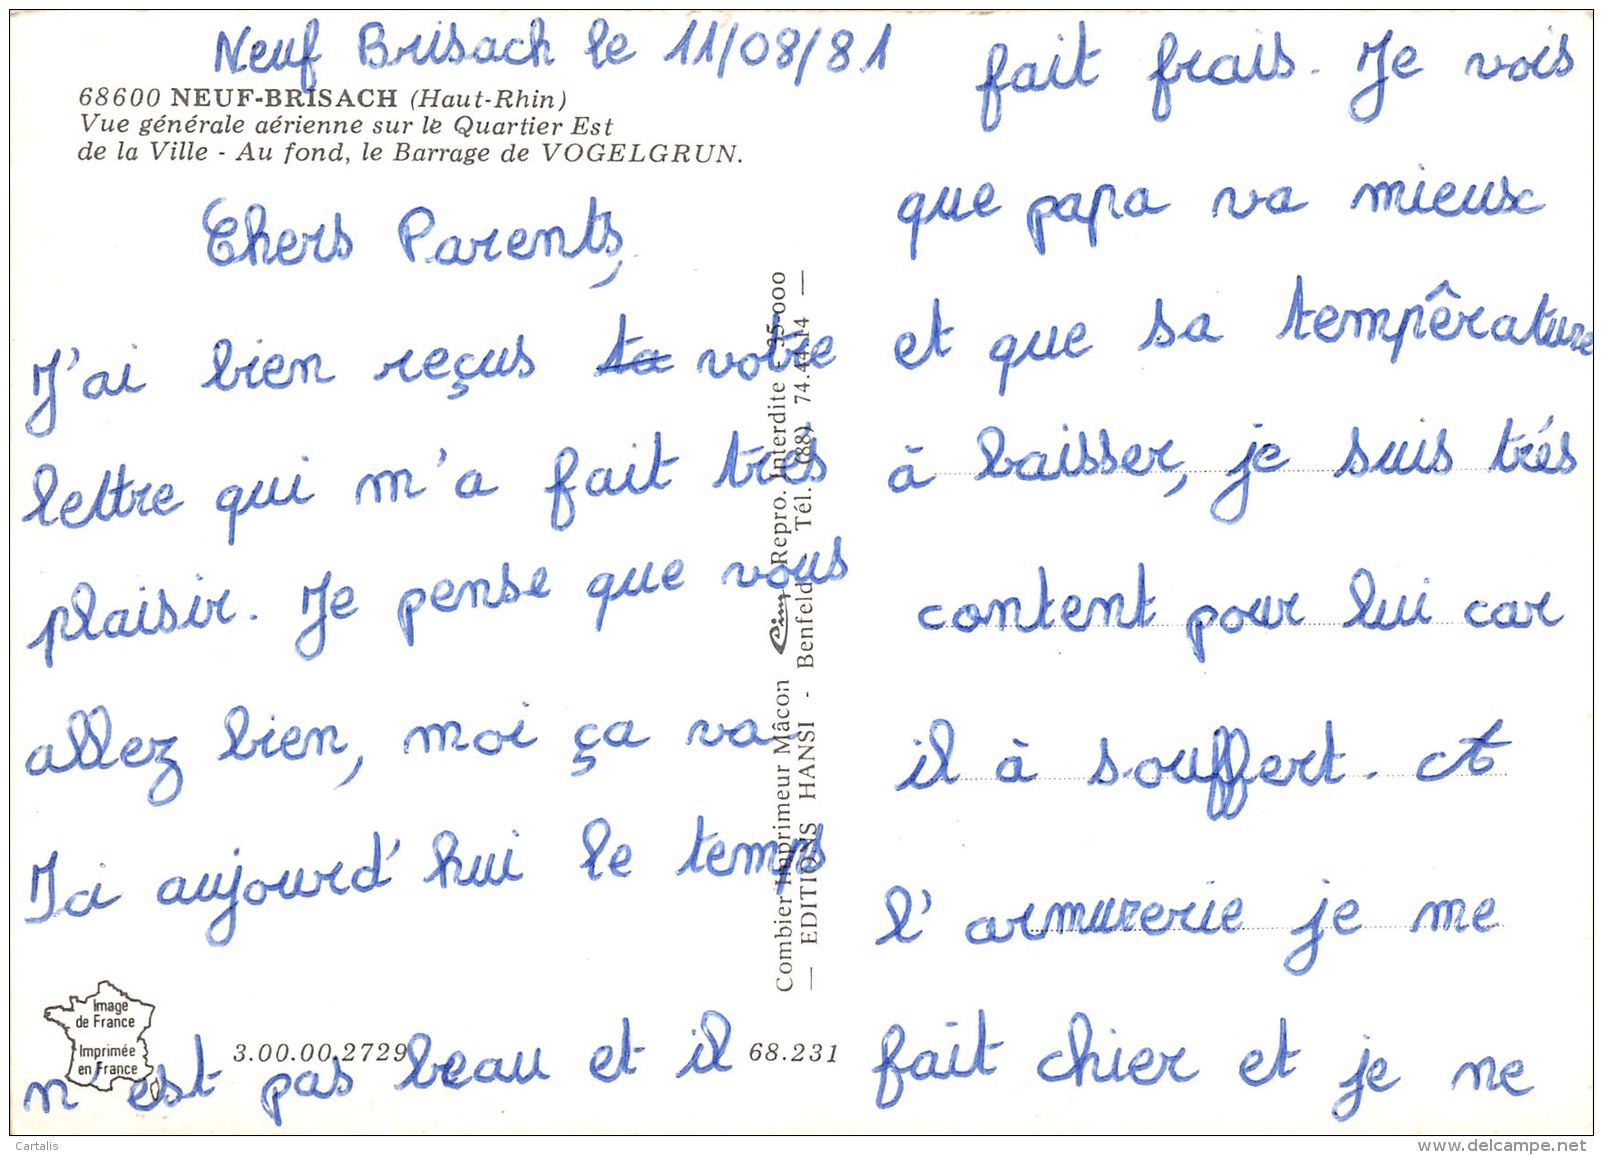 Neuf Brisach le 11/08/81
68600 NEUF-BRISACH (Haut-Rhin)
Vue générale aérienne sur le Quartier Est
de la Ville - Au fond, le Barrage de VOGELGRUN.
Chers Parents,
J'ai bien reçus ta votre
lettre qui m'a fait très
plaisir. Je pense que vous
allez bien, moi ça va.
Ici aujourd'hui le temps
n'est pas beau et il
fait frais. Je vois
que papa va mieux
et que sa tempêrature
à baisser, je suis trés
content pour lui car
il à souffert. A
l'armurerie je me
fait chier et je ne
Combier Imprimeur Mâcon Cim Repro. Interdite - 35-000
— EDITIONS HANSI - Benfeld - Tél. (88) 74.44.14 —
Image
de France
Imprimée
en France
3.00.00.2729
68.231
Cartalis
www.delcampe.net